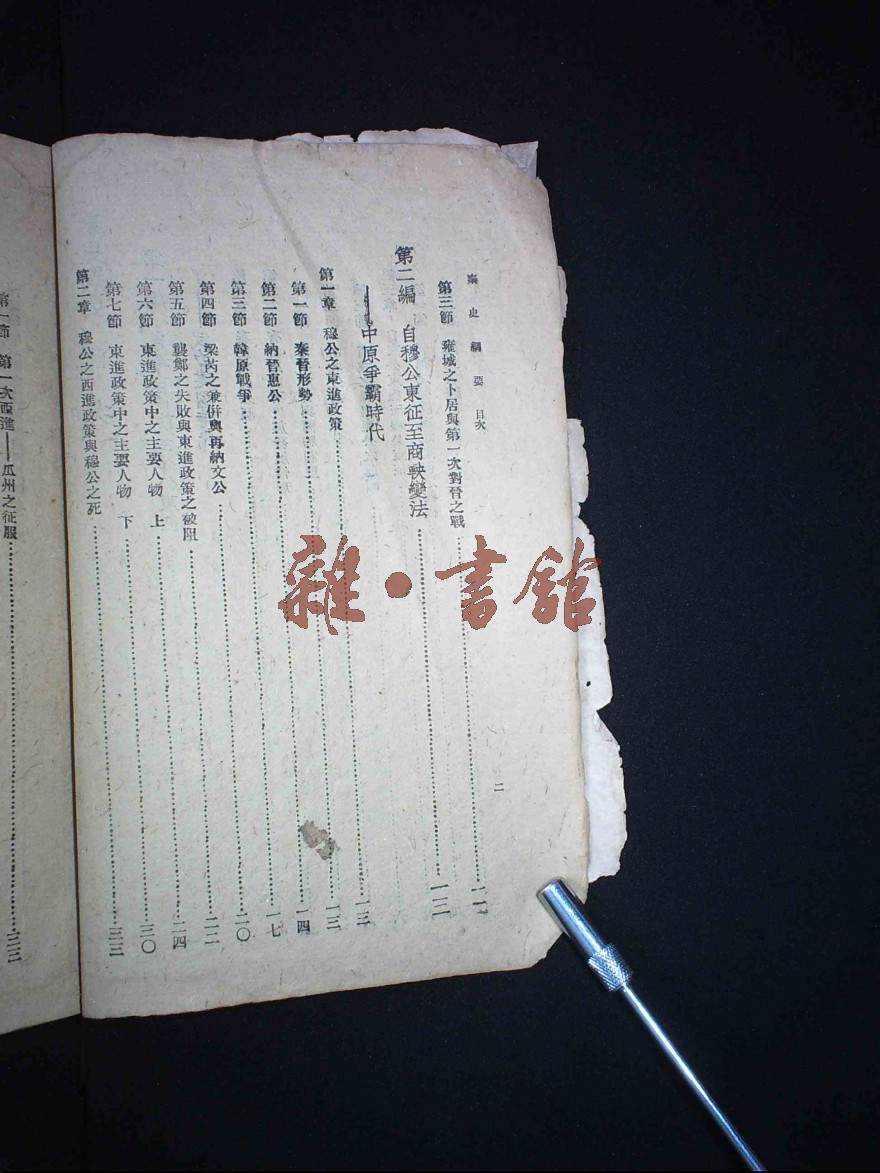 秦史綱要 目次
二
第三節 雍城之卜居與第一次對晉之戰……一一
第二編 自穆公東征至商鞅變法……一三
——中原爭霸時代……一三
第一章 穆公之東進政策……一三
第一節 秦晉形勢……一四
第二節 納晉惠公……一七
第三節 韓原戰爭……二〇
第四節 梁芮之兼併與再納文公……二二
第五節 襲鄭之失敗與東進政策之破阻……二四
第六節 東進政策中之主要人物 上……三〇
第七節 東進政策中之主要人物 下
第二章 穆公之西進政策與穆公之死……三三
第一節 第一次西進——瓜州之征服……三三
雜·書館